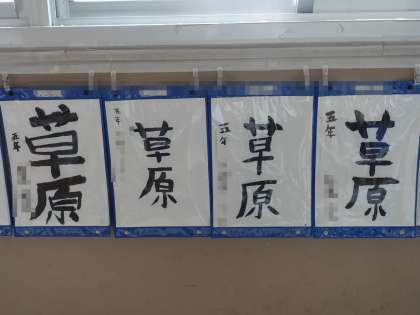 草原
五年
草原
五年
草原
五年
草原
五年